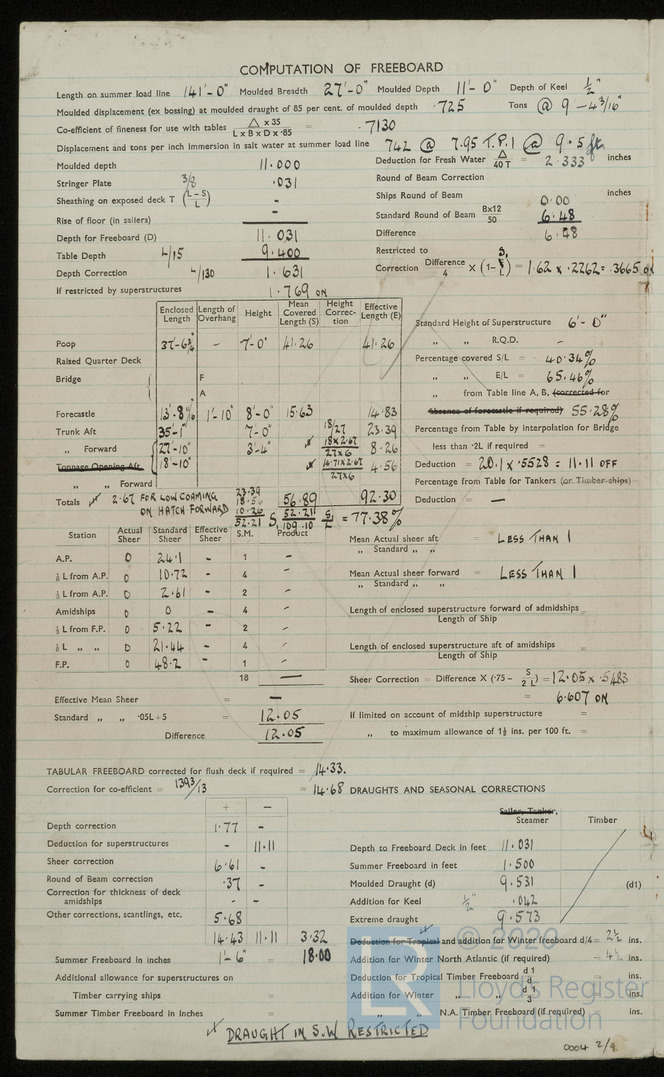 COMPUTATION OF FREEBOARD
Length on summer load line 141'-0" Moulded Breadth 27'-0" Moulded Depth 11'-0" Depth of Keel ½"
Moulded displacement (ex bossing) at moulded draught of 85 per cent. of moulded depth 725 Tons @ 9-4 3/16"
Co-efficient of fineness for use with tables △ x 35 / L x B x D x ·85 = ·7130
Displacement and tons per inch immersion in salt water at summer load line 742 @ 7.95 T.P.I @ 9.5 ft
Moulded depth 11.000 Deduction for Fresh Water △ / 40 T = 2.333 inches
Stringer Plate 3/8 .031 Round of Beam Correction
Sheathing on exposed deck T (L-S / L) - Ships Round of Beam 0.00 inches
Rise of floor (in sailers) - Standard Round of Beam Bx12 / 50 6.48
Depth for Freeboard (D) 11.031 Difference 6.48
Table Depth L/15 9.400 Restricted to
Depth Correction L/130 1.631 Correction Difference / 4 X (1- S₁ / L) = 1.62 x .2262 = .3665 ON
If restricted by superstructures 1.769 ON
Enclosed Length Length of Overhang Height Mean Covered Length (S) Height Correction Effective Length (E)
Standard Height of Superstructure 6'-0"
Poop - 7'-0" 41.26 41.26 „ „ R.Q.D. -
Raised Quarter Deck Percentage covered S/L - 40.34%
Bridge F „ E/L - 65.46%
A „ from Table line A, B, (corrected for
Forecastle 1'-10" 8'-0" 15.63 14.83 absence of forecastle if required) 55.28%
Trunk Aft 35'-1" 7'-0" 18/27 23.39 Percentage from Table by interpolation for Bridge
„ Forward 27'-10" 3'-4" 18x2.67 / 27x6 8.26 less than ·2L if required =
Tonnage Opening Aft 18'-10" 14.71x2.67 / 27x6 4.56 Deduction = 20.1 x .5528 = 11.11 OFF
„ „ Forward Percentage from Table for Tankers (or Timber ships)
Totals 56.89 92.30 Deduction = —
2.67 FOR LOW COAMING
ON HATCH FORWARD
23.39
18.56
10.26
52.21 S₁ 52.211 / 109.10 S₁/L = 77.38%
Station Actual Sheer Standard Sheer Effective Sheer S.M. Product
Mean Actual sheer aft / „ Standard „ „ - LESS THAN 1
A.P. 0 24.1 - 1 -
⅙ L from A.P. 0 10.72 - 4 - Mean Actual sheer forward / „ Standard „ „ = LESS THAN 1
⅓ L from A.P. 0 2.61 - 2 -
Amidships 0 0 - 4 - Length of enclosed superstructure forward of admidships / Length of Ship =
⅓ L from F.P. 0 5.22 - 2 -
⅙ L „ „ 0 21.44 - 4 - Length of enclosed superstructure aft of amidships / Length of Ship =
F.P. 0 48.2 - 1 -
18 — Sheer Correction = Difference X (·75 - S / 2 L) = 12.05 x .5483
Effective Mean Sheer = — = 6.607 ON
Standard „ „ ·05L+5 = 12.05 If limited on account of midship superstructure =
Difference 12.05 „ to maximum allowance of 1½ ins. per 100 ft. =
TABULAR FREEBOARD corrected for flush deck if required = 14.33.
Correction for co-efficient = 1393/13 = 14.68 DRAUGHTS AND SEASONAL CORRECTIONS
+ - Sailer, Tanker, Steamer Timber
Depth correction 1.77 -
Deduction for superstructures - 11.11 Depth to Freeboard Deck in feet 11.031
Sheer correction 6.61 - Summer Freeboard in feet 1.500
Round of Beam correction .37 - Moulded Draught (d) 9.531 (d1)
Correction for thickness of deck amidships - - Addition for Keel ½" .042
Other corrections, scantlings, etc. 5.68 Extreme draught 9.573
14.43 11.11 3.32 Deduction for Tropical and addition for Winter freeboard d/4 = 2½ ins.
Summer Freeboard in inches 1'-6" = 18.00 Addition for Winter North Atlantic (if required) - 4½ ins.
Additional allowance for superstructures on Deduction for Tropical Timber Freeboard d1 = ins.
Timber carrying ships = Addition for Winter „ „ d1 = ins.
Summer Timber Freeboard in inches = „ „ N.A. Timber Freeboard (if required) ins.
DRAUGHT IN S.W RESTRICTED
© 2020
LR Lloyd's Register
Foundation
0004 2/9